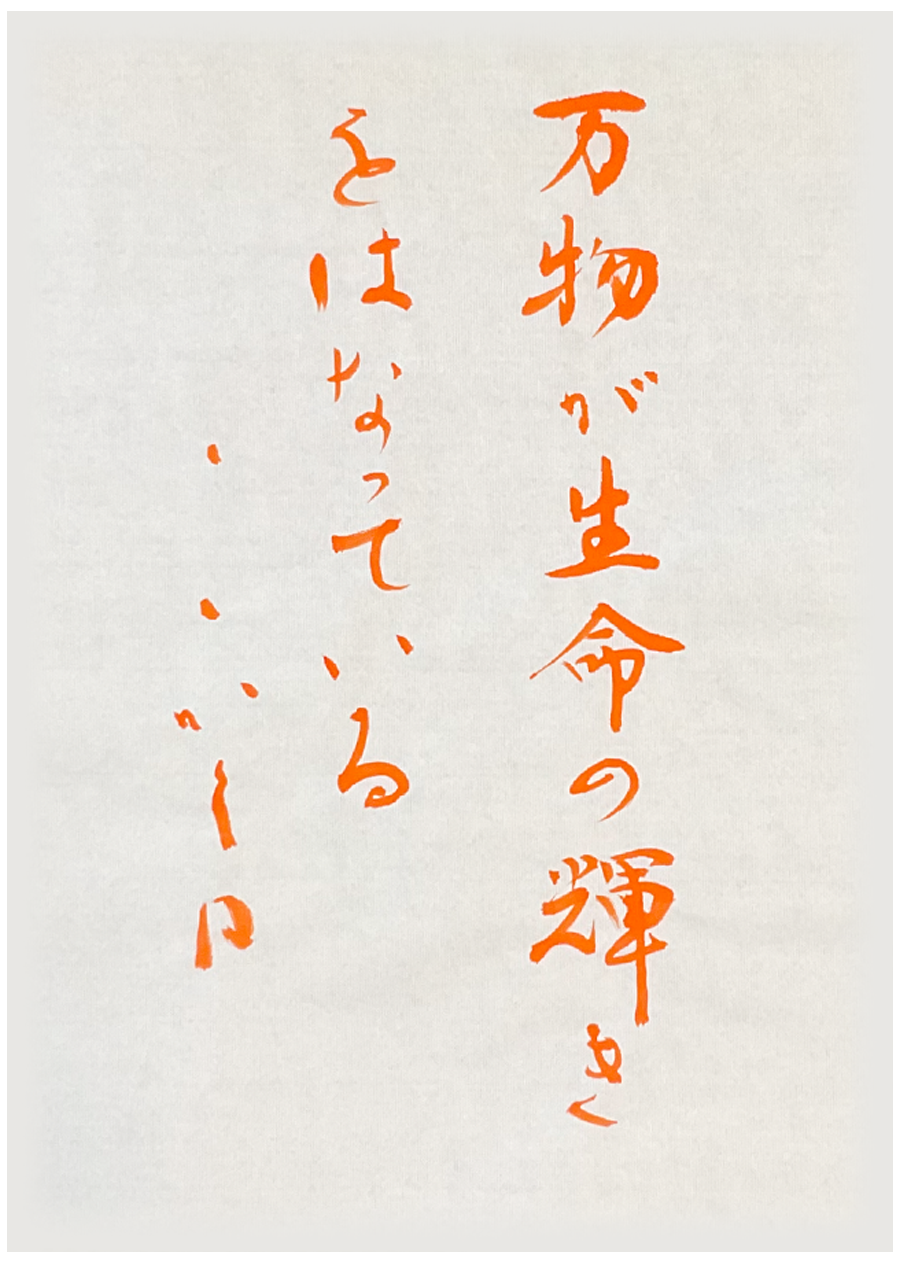 万物が生命の輝き
をはなっている